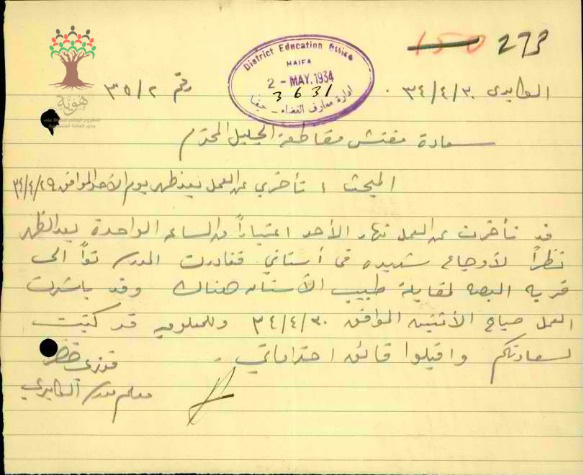 150 273
District Education Office
HAIFA
2 - MAY. 1934
3631
ادارة معارف القضاء - حيفا
هوية
رقم ٣٥/٢
الكابري ٣٤/٤/٣٠
سعادة مفتش مقاطعة الجليل المحترم
المبحث : تأخري عن العمل بعد ظهر يوم الأحد الموافق ٣٤/٤/٢٩
قد تأخرت عن العمل نهار الأحد اعتباراً من الساعه الواحدة بعد الظهر
نظراً لأوجاع شديده في أسناني فغادرت المدرسة تواً الى
قرية البصه لمقابلة طبيب الأسنان هناك وقد باشرت
العمل صباح الأثنين الموافق ٣٤/٤/٣٠ وللمعلوميه قد كتبت
لسعادتكم واقبلوا فائق احتراماتي .
فوزي خضر
معلم مدرسة الكابري